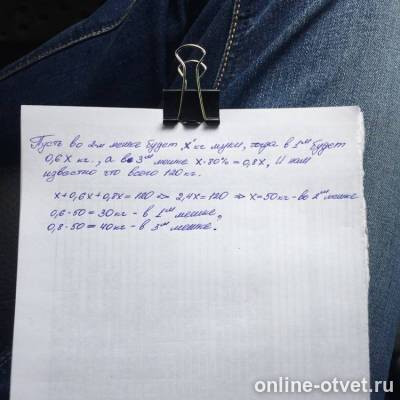 Пусть во 2м мешке будет x кг муки, тогда в 1ом будет
0,6x кг., а во 3ем мешке x·80% = 0,8x, И нам
известно что всего 120кг.
x+0,6x+0,8x=120 => 2,4x=120 => x=50кг - во 2м мешке
0,6·50=30кг - в 1ом мешке,
0,8·50=40кг - в 3ем мешке.
online-otvet.ru